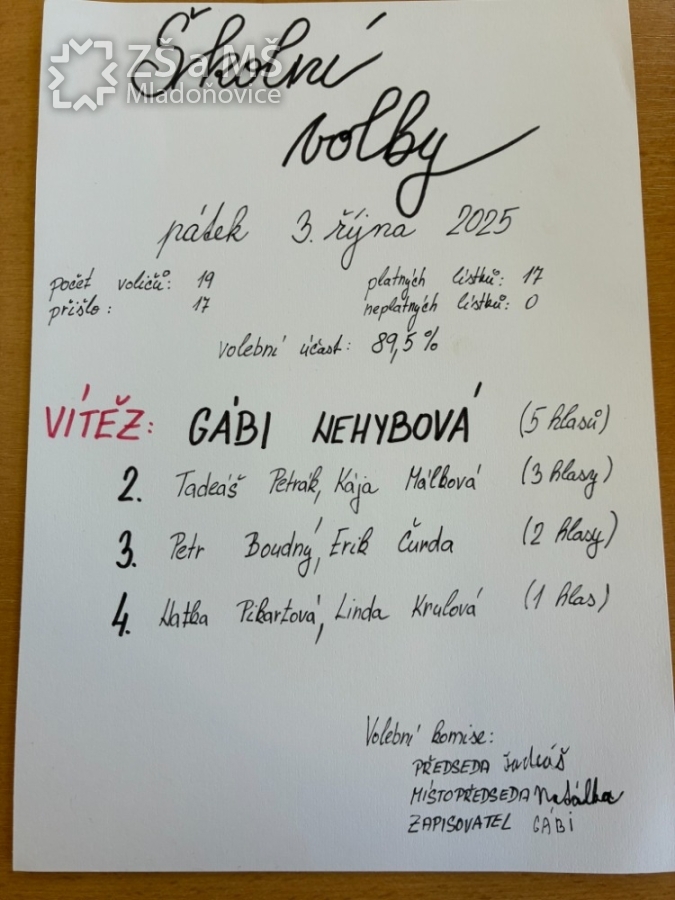 ZŠ a MŠ
Mladoňovice
Školní
volby
pátek 3. října 2025
počet voličů: 19 platných lístků: 17
přišlo: 17 neplatných lístků: 0
volební účast: 89,5 %
VÍTĚZ: GÁBI NEHYBOVÁ (5 hlasů)
2. Tadeáš Petrák, Kája Málková (3 hlasy)
3. Petr Boudný, Erik Čurda (2 hlasy)
4. Natka Pikartová, Linda Krulová (1 hlas)
Volební komise:
PŘEDSEDA Tadeáš
MÍSTOPŘEDSEDA Natálka
ZAPISOVATEL GÁBI